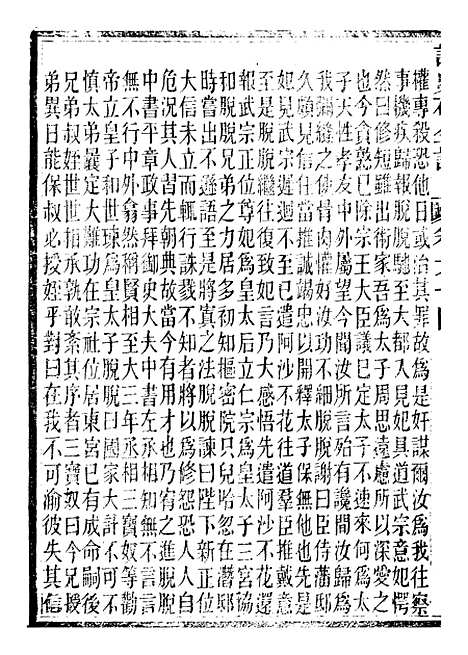 權專殺恐他日或治其罪故爲是奸謀爾汝爲我往察
事機疾歸報脫脫馳至大都入見妃具道武宗意妃愕
然曰修短雖出術家吾爲太子周思遠慮所以深愛之
也今貪慝已除宗王大臣議已定太子不速來何爲
子天性孝友中外屬望今聞汝所言殆有讒間汝歸爲太
我彌縫之使我兄弟功不細脫脫謝曰臣侍藩邸
久頗見信任今歸當竭忠以開釋太子武宗
如見武宗遲迴不至已遣阿沙不花往道羣臣推戴意
至是脫脫繼往復致妃言乃大感悟先遣阿沙不花還
報武宗正位尊妃爲皇太后立仁宗爲皇太子三宮協
和脫脫兄弟之力居多初知樞密院只兒哈忽在潛邸
時嘗出不遜語至是將眞之法脫脫諫曰陛下新正位
大信未立而輒行誅戮不知者將以爲修怨恐人人自
危況其人習先朝典故當今有用才也乃宥之進脫脫
中書平章政事拜御史大夫中書左丞相知無不言言
無不行中外翕然稱賢相至大三年丞相三寶奴等勸
帝立皇子和世㻋爲皇子脫脫曰國家大計不可不
慎太弟曩定大難功在宗社位居東宮已有成命嗣後
兄弟叔姪世世相承孰敢紊其序者三寶奴曰今兄授
弟異日能保叔必授姪乎對曰在我不可渝彼失其信